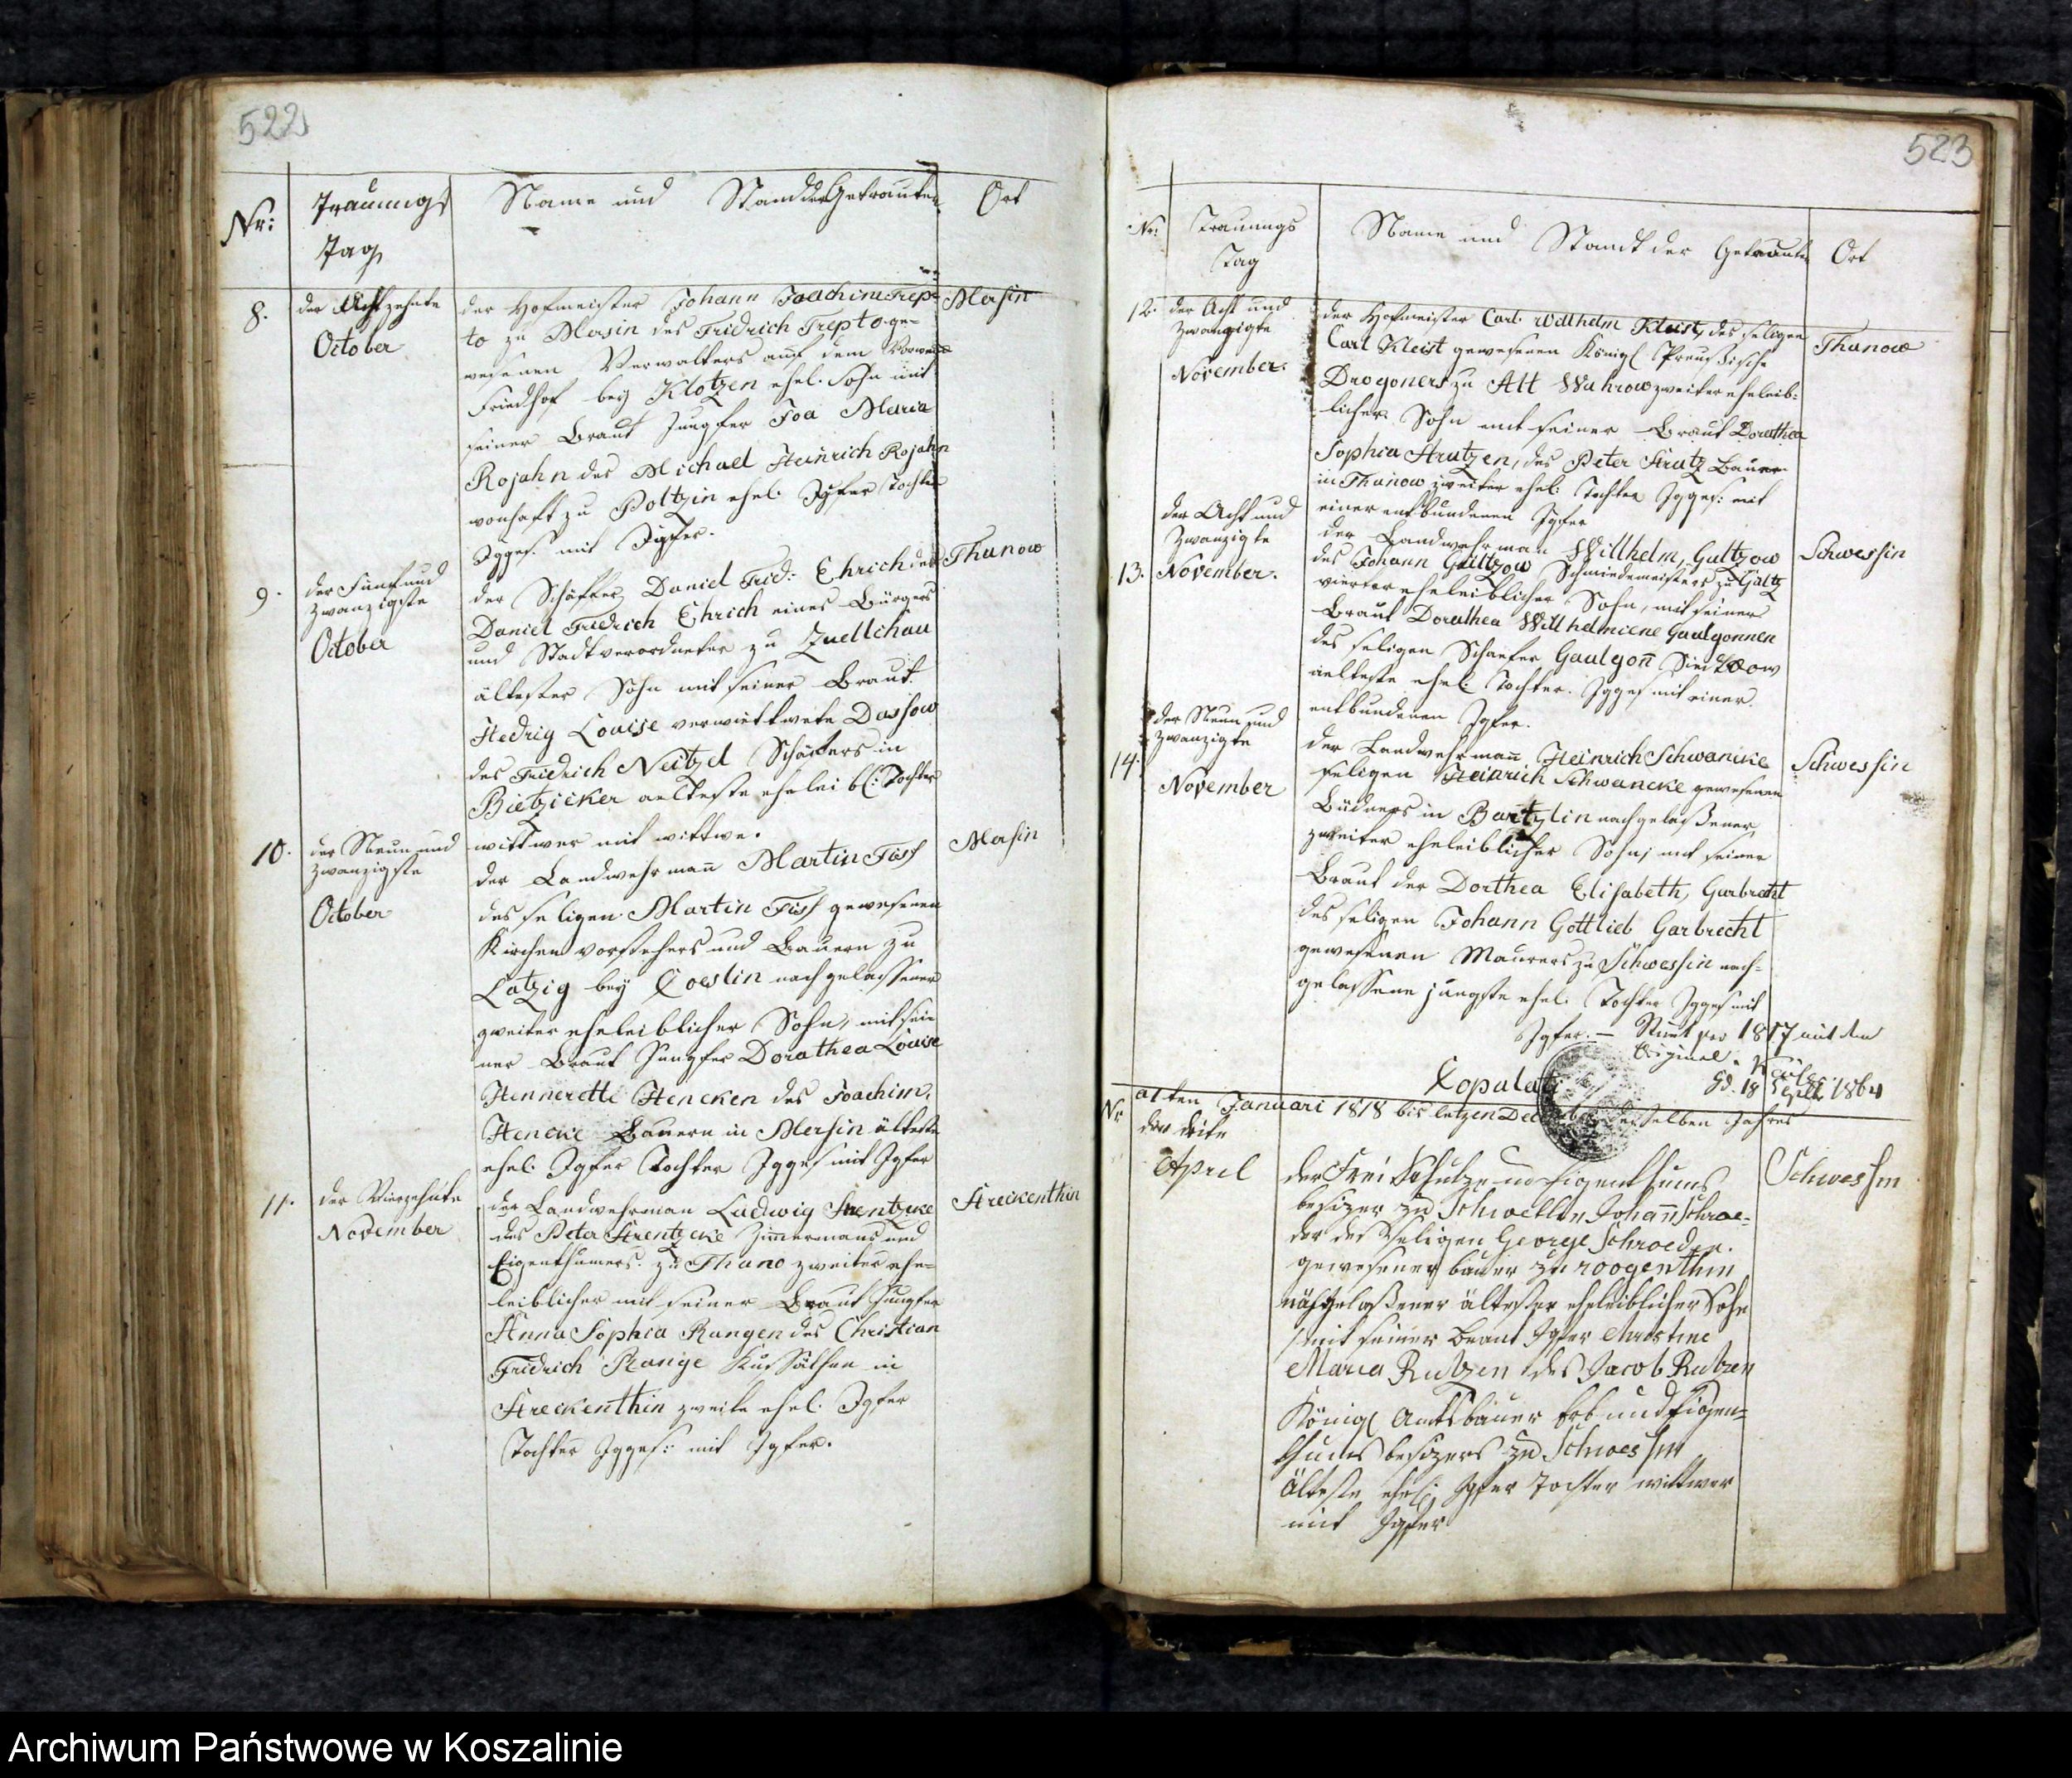 522
Nr:
Trauungs
Tag
Name und Stand der Getrauten
Ort
8.
der Achtzehnte
October
der Hofmeister Johann Joachim Trep-
to zu Mersin des Fridrich Trepto ge-
wesenen Verwalters auf dem Vorwerk
Friedhof bey Klotzen ehel. Sohn mit
seiner Braut Jungfer Maria
Rojahn des Michael Heinrich Rojahn
wonhaft zu Poltzin ehel. Jgfer Tochter
Jgges. mit Jgfer.
Mersin
9.
der Fünf und
zwanzigste
October
der Schäffer Daniel Frid: Ehrich des
Daniel Fridrich Ehrich eines Bürgers
und Stadtverordneter zu Zuellichau
ältester Sohn mit seiner Braut
Hedrig Louise verwittwete Dassow
des Fridrich Neitzel Schäfers in
Bietziker aelteste eheleibl: Tochter
wittwer mit wittwe.
Thunow
10.
der Neun und
zwanzigste
October
der Landwehrmann Martin Füss
des seligen Martin Füss gewesenen
Kirchenvorstehers und Bauern zu
Latzig bey Coeslin nachgelassener
zweiter eheleiblicher Sohn, mit sei
ner Braut Jungfer Dorathea Louise
Hennerette Hencken des Joachim
Hencke Bauern in Mersin älteste
ehel. Jgfer Tochter Jgges mit Jgfer
Mersin
11.
der Vierzehnte
November
der Landwehrman Ludwig Strentzcke
des Peter Strentzcke Zimmermans und
Eigenthümers zu Thuno zweiter ehe-
leiblicher mit seiner Braut Jungfer
Anna Sophia Rangen des Christian
Fridrich Range Kussäthen in
Streckenthin zweite ehel. Jgfer
Tochter Jgges: mit Jgfer.
Streickenthin
523
Nr:
Trauungs
Tag
Name und Standt der Getrauten
Ort
12.
der Acht und
zwanzigte
November.
der Hofmeister Carl Willhelm Kleist, des seligen
Carl Kleist gewesenen Königl Preußische
Dragoners zu Alt Wuhrow zweiter eheleib-
licher Sohn mit seiner Braut Dorathea
Sophia Strutzen, des Peter Strutz Bauer
in Thunow zweiter ehel: Tochter Jgges: mit
einer entbundenen Jgfer
Thunow
13.
der Acht und
zwanzigte
November.
der Landwehrman Willhelm, Gultzow
des Johann Gültzow Schmiedemeisters zu Gültz
vierter eheleiblicher Sohn, mit seiner
Braut Dorathea Willhelmiene Gaulgonnen
des seligen Schaefer Gaulgoñ
aelteste ehel: Tochter. Jgges mit einer
entbundenen Jgfer.
Schwessin
14.
der Neun und
zwanzigte
November
der Landwehrmañ Heinrich Schwancke
seligen Heinrich Schwancke gewesenen
Büdners in Bantzlin nachgelaßener,
zweiter eheleiblicher Sohn, mit seiner
Braut der Dorthea Elisabeth, Garbrecht
des seligen Johann Gottlieb Garbrecht
gewesenen Maurers zu Schwessin nach-
gelassene jüngste ehel. Tochter Jgges mit
Jgfer. — Stimt pro 1817 mit dem
Original.
Schwessin
18 Septbr 1864
Copulati
Nr
a 1ten Januari 1818 bis letzen December desselben Jahres
der dritte
April
der Frei Schulze u Eigenthums
besizer zu Schwellin Johañ Schroe-
der des Seligen George Schroeder
gewesener bauer zu roogenthin
nachgelaßener ältester eheleiblicher Sohn
mit seiner Braut Jgfer Christine
Maria Rutzen des Jacob Rutzen
Königl Amtsbauer Erb und Eigen-
thums besizers zu Schwessin
älteste ehel: Jgfer Tochter wittwer
mit Jgfer
Schwessin
Archiwum Państwowe w Koszalinie